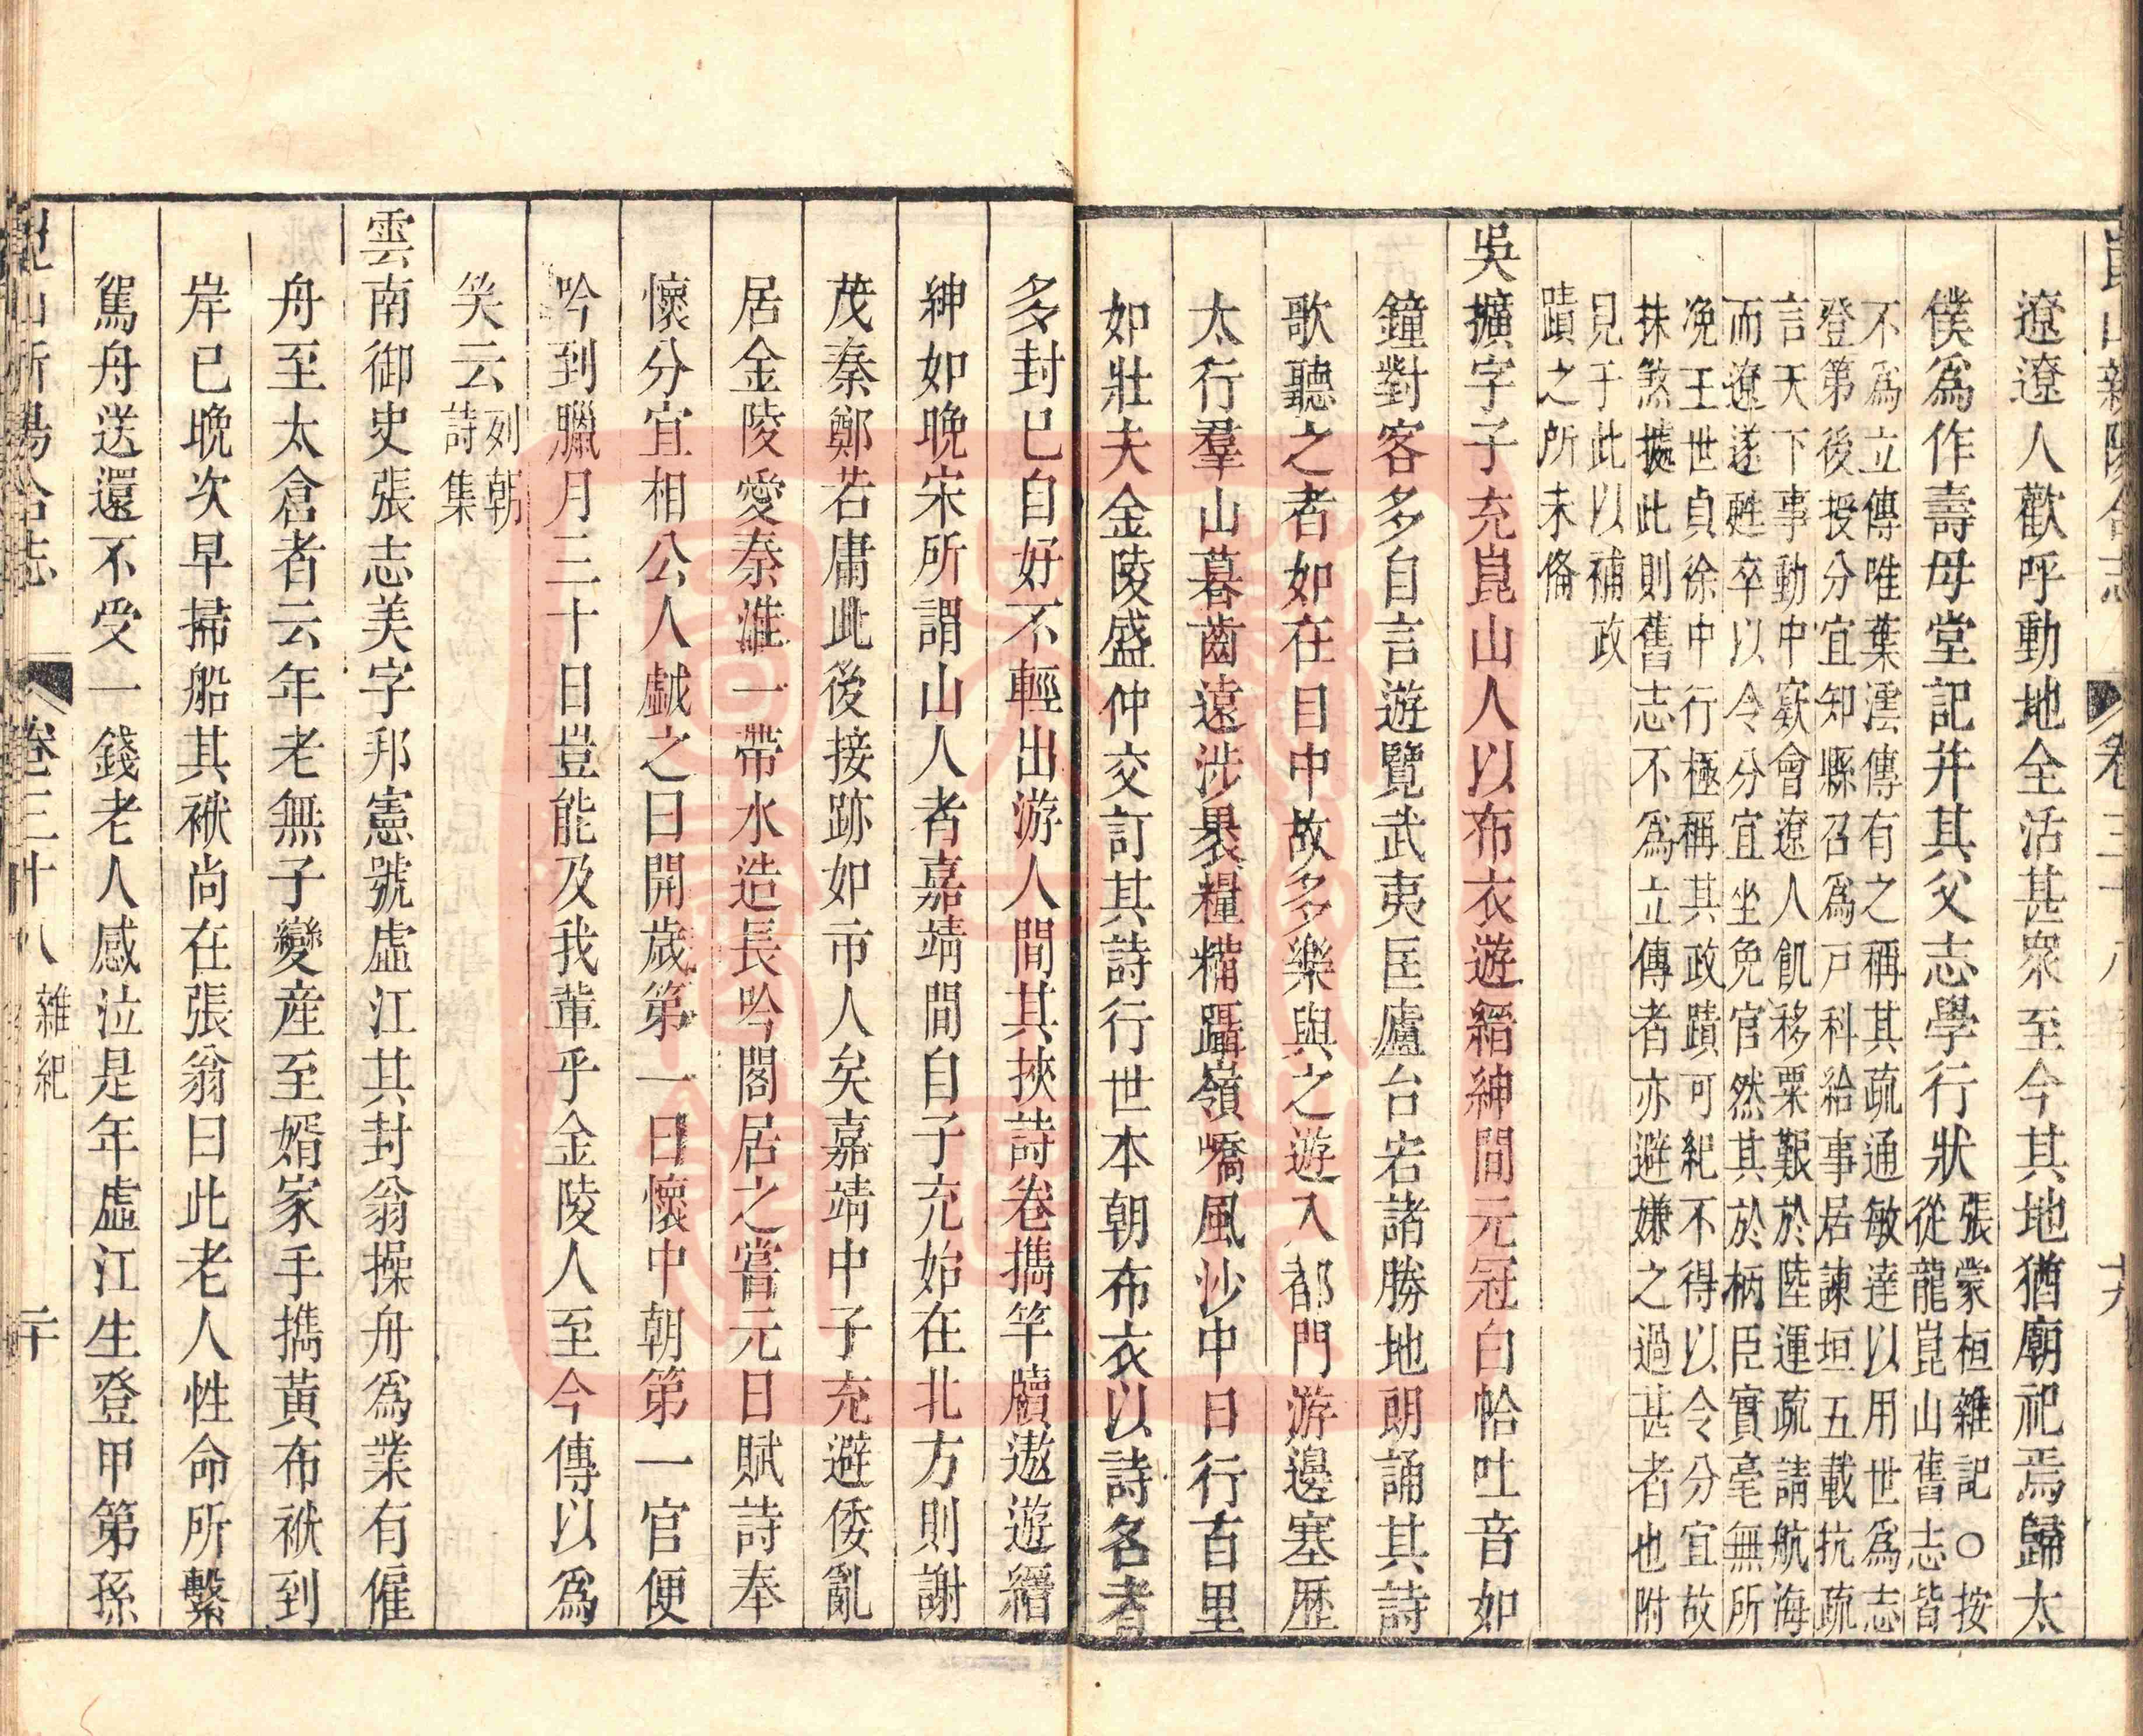 遼遼人歡呼動地全活甚眾至今其地猶廟祀焉歸太
僕爲作壽母堂記并其父志學行狀張蒙桓雜記○按
從龍崑山舊志皆
不爲立傳唯葉澐傳有之稱其疏通敏達以用世爲志
登第後授分宜知縣召爲戸科給事居諫垣五載抗疏
言天下事動中窽會遼人飢移粟艱於陸運疏請航海
而遼遂甦卒以令分宜坐免官然其於柄臣實毫無所
浼王世貞徐中行極稱其政蹟可紀不得以令分宜故
抹煞據此則舊志不爲立傳者亦避嫌之過甚者也附
見于此以補政
蹟之所未備
吳擴字子充崑山人以布衣遊縉紳間元冠白恰吐音如
鐘對客多自言遊覽武夷匡廬台宕諸勝地朗誦其詩
歌聽之者如在目中故多樂與之遊入都門游邊塞歷
太行羣山暮齒遠涉裹糧糒躡嶺嶠風沙中日行百里
如壯夫金陵盛仲交訂其詩行世本朝布衣以詩名者
多封已自好不輕出游人間其挾詩卷攜竿牘遨遊縉
紳如晚宋所謂山人者嘉靖間自子充始在北方則謝
茂秦鄭若庸此後接跡如市人矣嘉靖中子充避倭亂
居金陵愛秦淮一帶水造長吟閣居之嘗元日賦詩奉
懷分宜相公人戲之曰開歲第一日懷中朝第一官便
吟到臘月三十日豈能及我輩乎金陵人至今傳以爲
笑云列朝
詩集
雲南御史張志美字邦憲號虛江其封翁操舟爲業有僱
舟至太倉者云年老無子變産至婿家手攜黃布袱到
岸已晚次早掃船其袱尚在張翁曰此老人性命所繫
駕舟送還不受一錢老人感泣是年虛江生登甲第孫
卷三十八 雜紀 二十